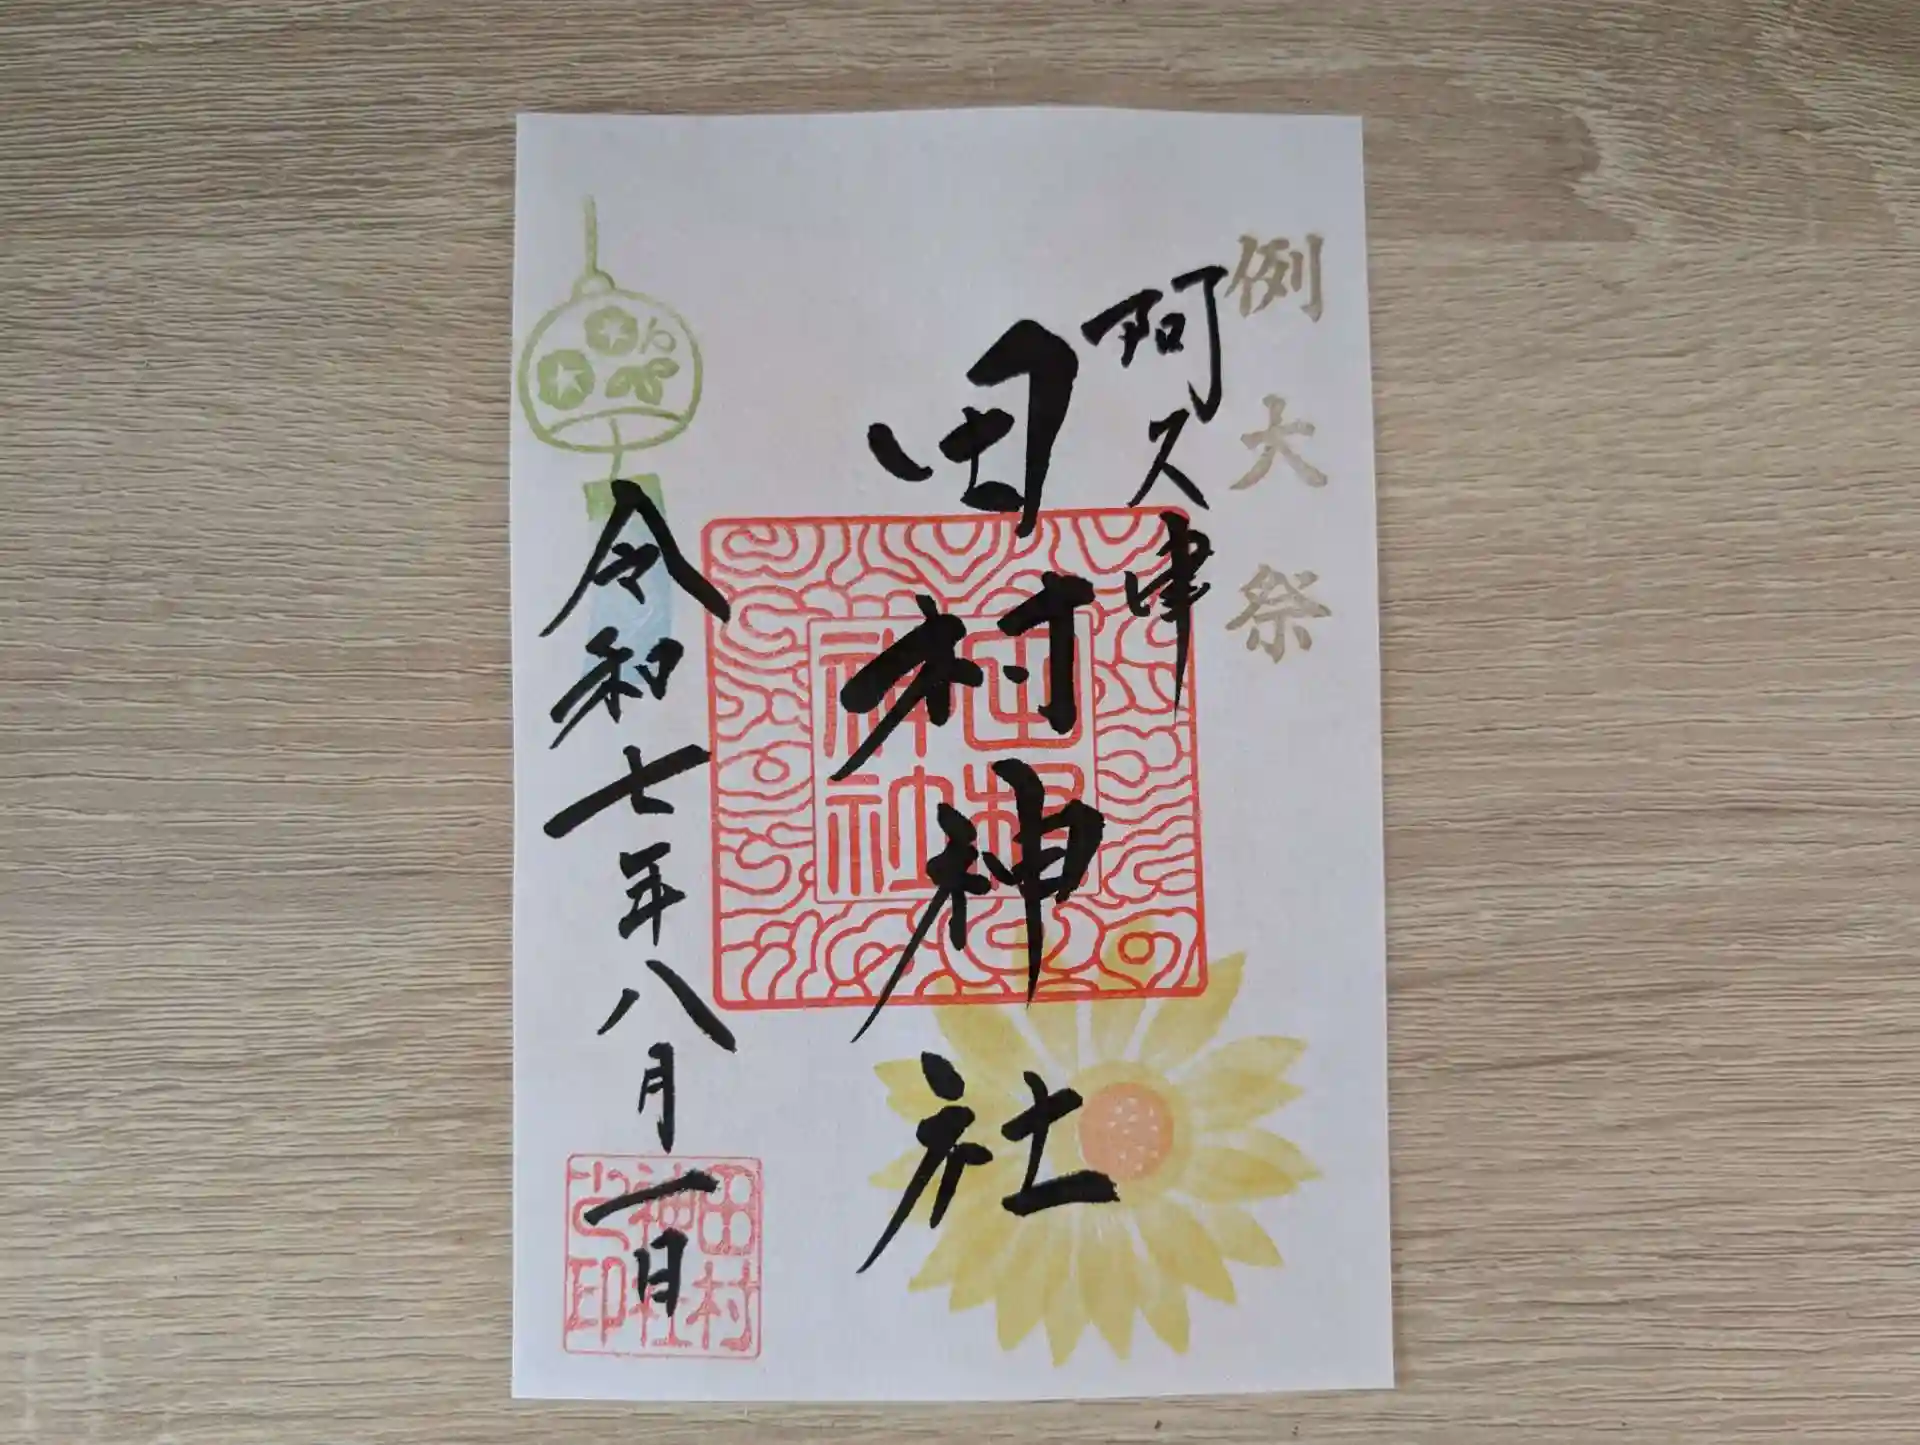 例大祭
阿久津
田村神社
田村神社
令和七年八月一日
田村神社之印